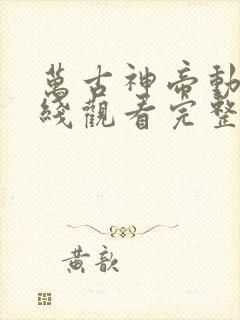 萬古神帝動
綫觀看完整
黃歆